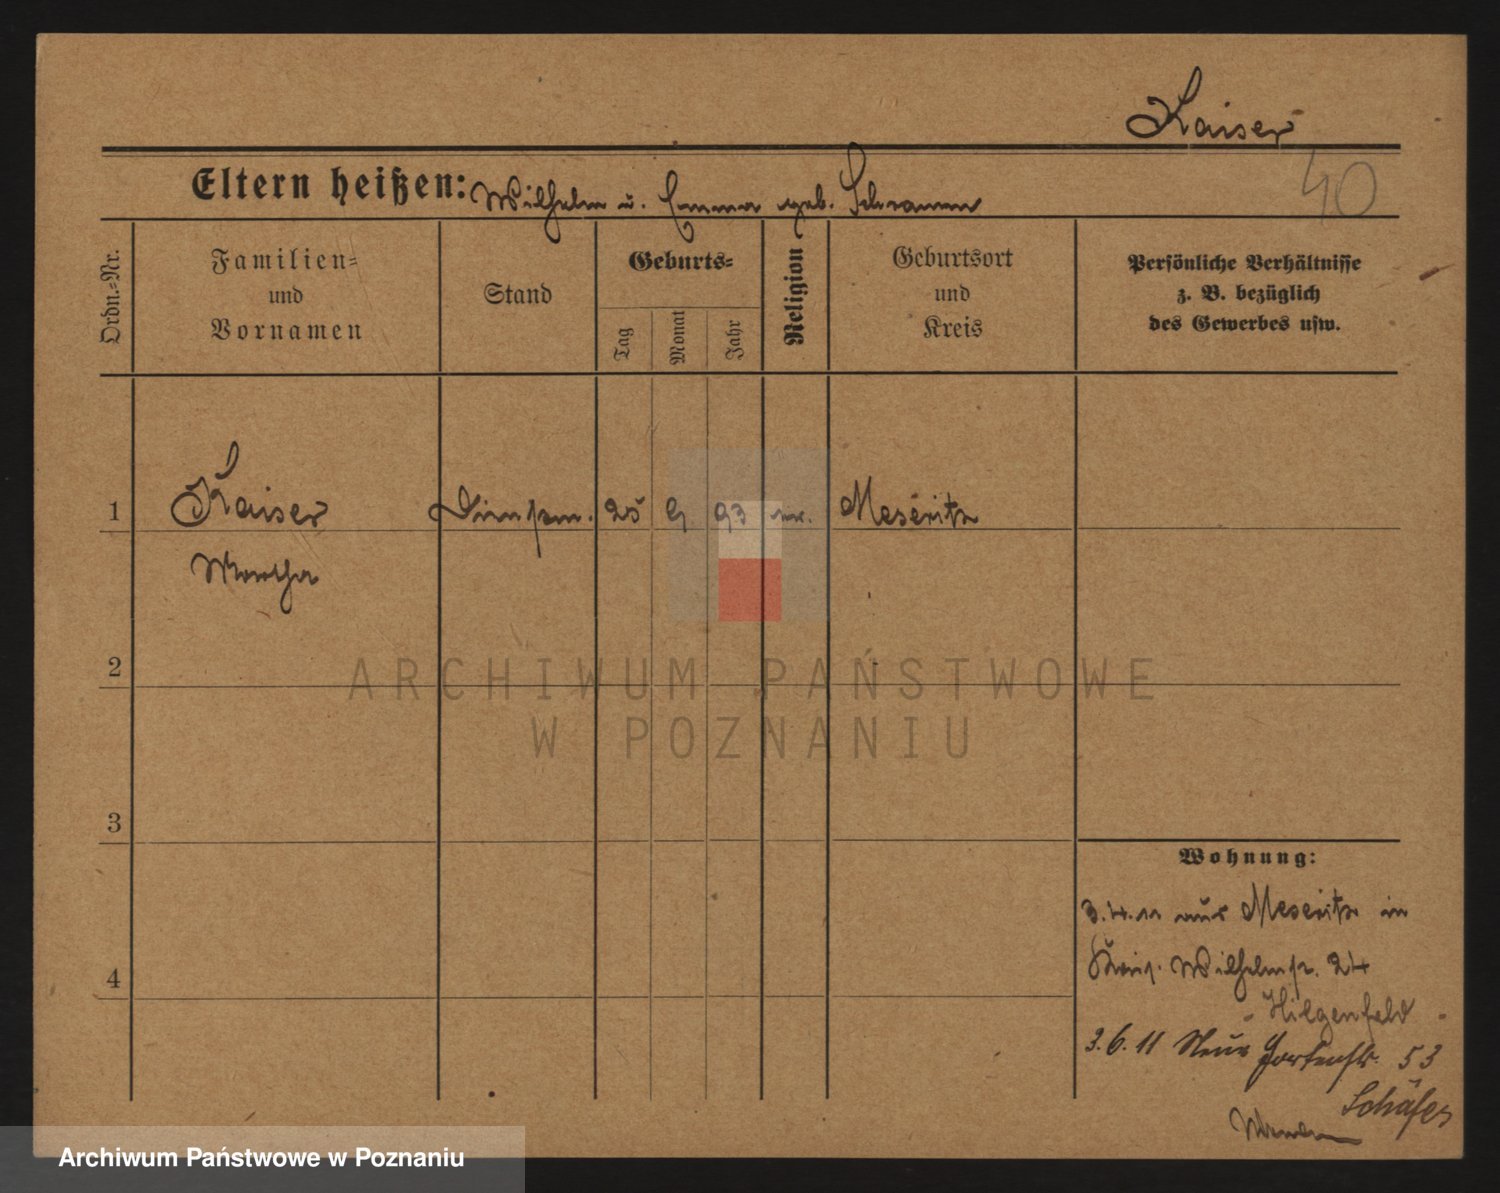 Kaiser
40
Eltern heißen: Wilhelm u. Emma geb. Schramm
Ordn.-Nr.
Familien-
und
Vornamen
Stand
Geburts-
Tag
Monat
Jahr
Religion
Geburtsort
und
Kreis
Persönliche Verhältnisse
z. B. bezüglich
des Gewerbes usw.
1 Kaiser 25 9 93 Meseritz
Martha
2
ARCHIWUM PAŃSTWOWE
W POZNANIU
3
Wohnung:
3.4.11 aus Meseritz in
Wilhelmstr. 24
4
- Hilgenfeld -
3.6.11 Neue Gartenstr. 53
Schäfer
Archiwum Państwowe w Poznaniu